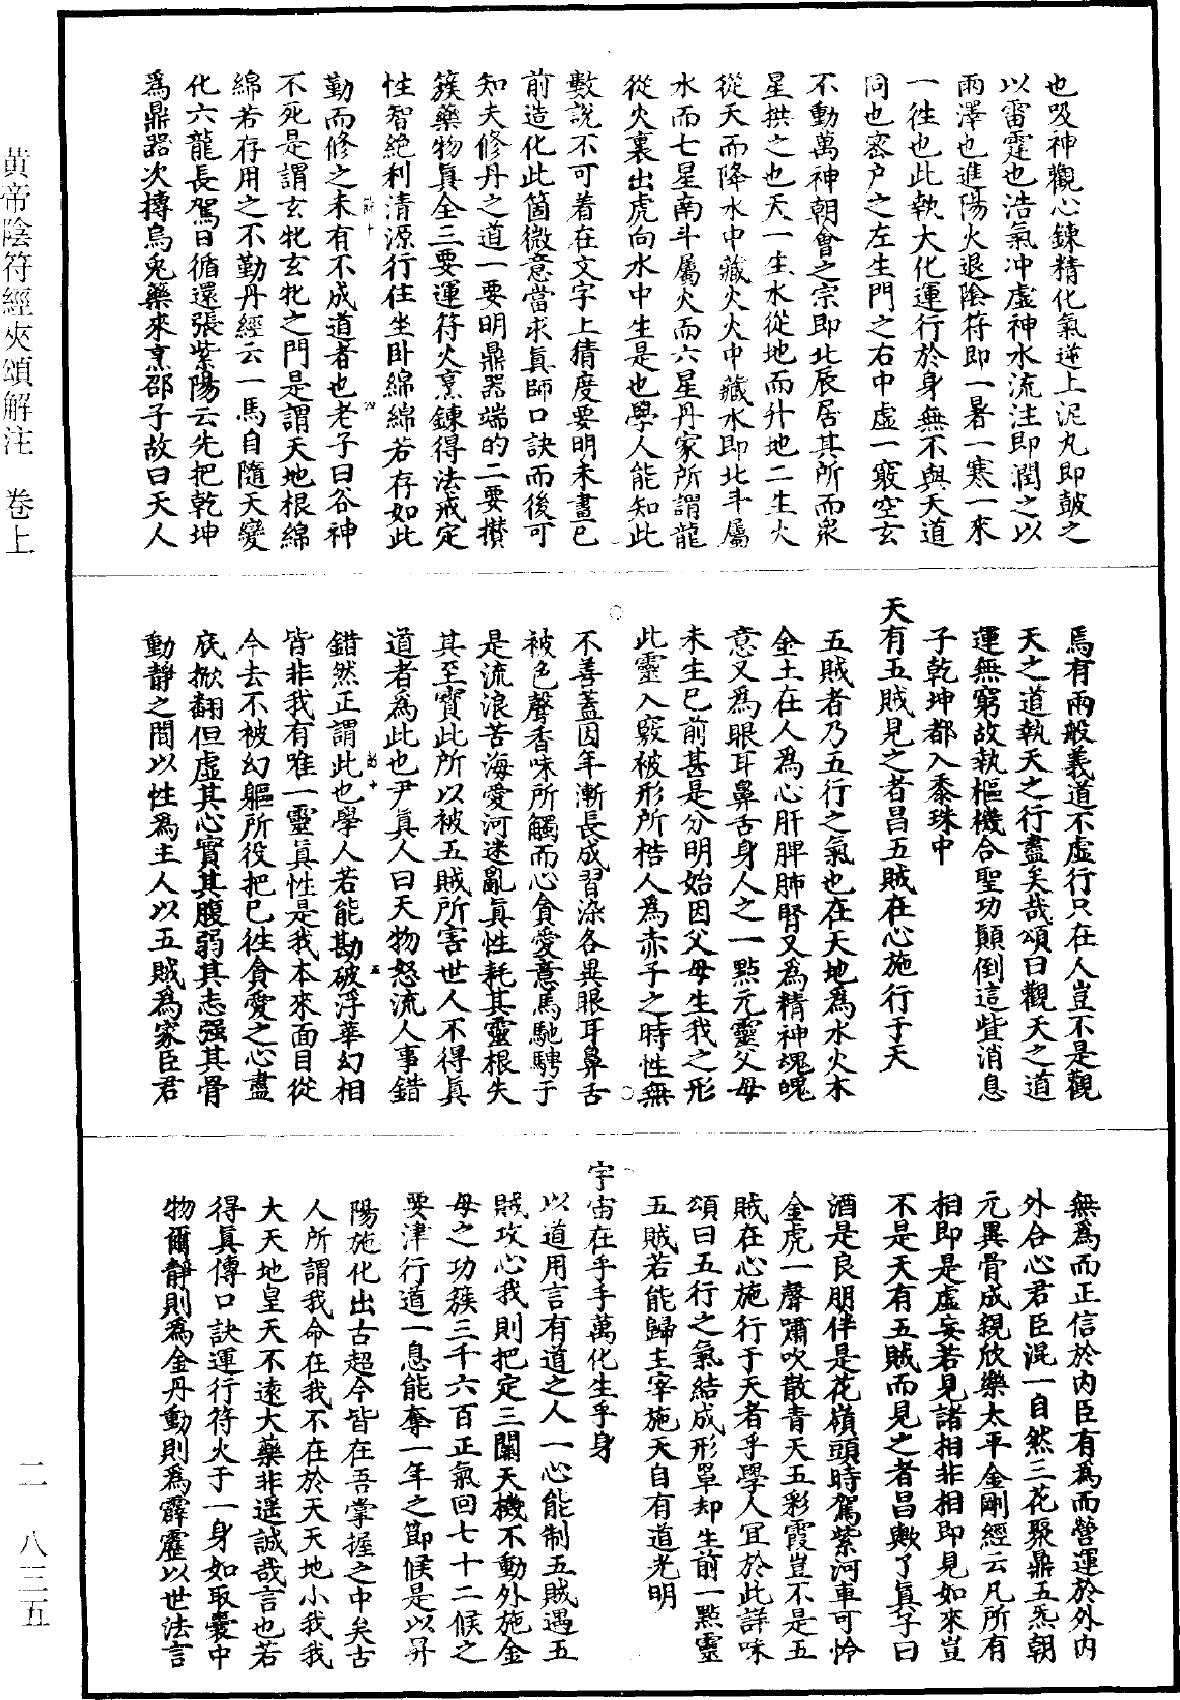 也吸神觀心鍊精化氣逆上泥丸即鼓之
以雷霆也浩氣冲虛神水流注即潤之以
雨澤也進陽火退陰符即一暑一寒一來
一往也此執大化運行於身無不與天道
同也密户之左生門之右中虛一竅空玄
不動萬神朝會之宗即北辰居其所而衆
星拱之也天一生水從地而升地二生火
從天而降水中藏火火中藏水即北斗屬
水而七星南斗屬火而六星丹家所謂龍
從火裏出虎向水中生是也學人能知此
數說不可着在文字上猜度要明未畫已
前造化此箇微意當求真師口訣而後可
知夫修丹之道一要明鼎器端的二要攅
簇藥物真全三要運符火烹鍊得法戒定
性智絶利清源行住坐卧綿綿若存如此
勤而修之未有不成道者也老子曰谷神
不死是謂玄牝玄牝之門是謂天地根綿
綿若存用之不勤丹經云一馬自隨天變
化六龍長駕日循還張紫陽云先把乾坤
爲鼎器次摶烏兎藥來烹邵子故曰天人
焉有兩般義道不虛行只在人豈不是觀
天之道執天之行盡矣哉頌曰觀天之道
運無窮故執樞機合聖功顛倒這些消息
子乾坤都入黍珠中
天有五賊見之者昌五賊在心施行于天
五賊者乃五行之氣也在天地爲水火木
金土在人爲心肝脾肺腎又爲精神魂魄
意又爲眼耳鼻舌身人之一點元靈父母
未生已前甚是分明始因父母生我之形
此靈入竅被形所梏人爲赤子之時性無
不善蓋因年漸長成習染各異眼耳鼻舌
被色聲香味所觸而心貪愛意馬馳騁于
是流浪苦海愛河迷亂真性耗其靈根失
其至寶此所以被五賊所害世人不得真
道者爲此也尹真人曰天物怒流人事錯
錯然正謂此也學人若能勘破浮華幻相
皆非我有唯一靈真性是我本來面目從
今去不被幻軀所役把已徃貪愛之心盡
底掀翻但虛其心實其腹弱其志强其骨
動靜之間以性爲主人以五賊爲家臣君
無爲而正信於内臣有爲而營運於外内
外合心君臣混一自然三花聚鼎五炁朝
元異骨成親欣樂太平金剛經云凡所有
相即是虛妄若見諸相非相即見如來豈
不是天有五賊而見之者昌歟了真子曰
酒是良朋伴是花嶺頭時駕紫河車可怜
金虎一聲嘯吹散青天五彩霞豈不是五
賊在心施行于天者乎學人宜於此詳味
頌曰五行之氣結成形單却生前一點靈
五賊若能歸主宰施天自有道光明
宇宙在乎手萬化生乎身
以道用言有道之人一心能制五賊遇五
賊攻心我則把定三關天機不動外施金
母之功簇三千六百正氣回七十二候之
要津行道一息能奪一年之節候是以昇
陽施化出古超今皆在吾掌握之中矣古
人所謂我命在我不在於天天地小我我
大天地皇天不遠大藥非遥誠哉言也若
得真傳口訣運行符火于一身如取囊中
物爾靜則爲金丹動則爲霹靂以世法言
黃帝陰符經夾頌解注　卷上
二一　八三五